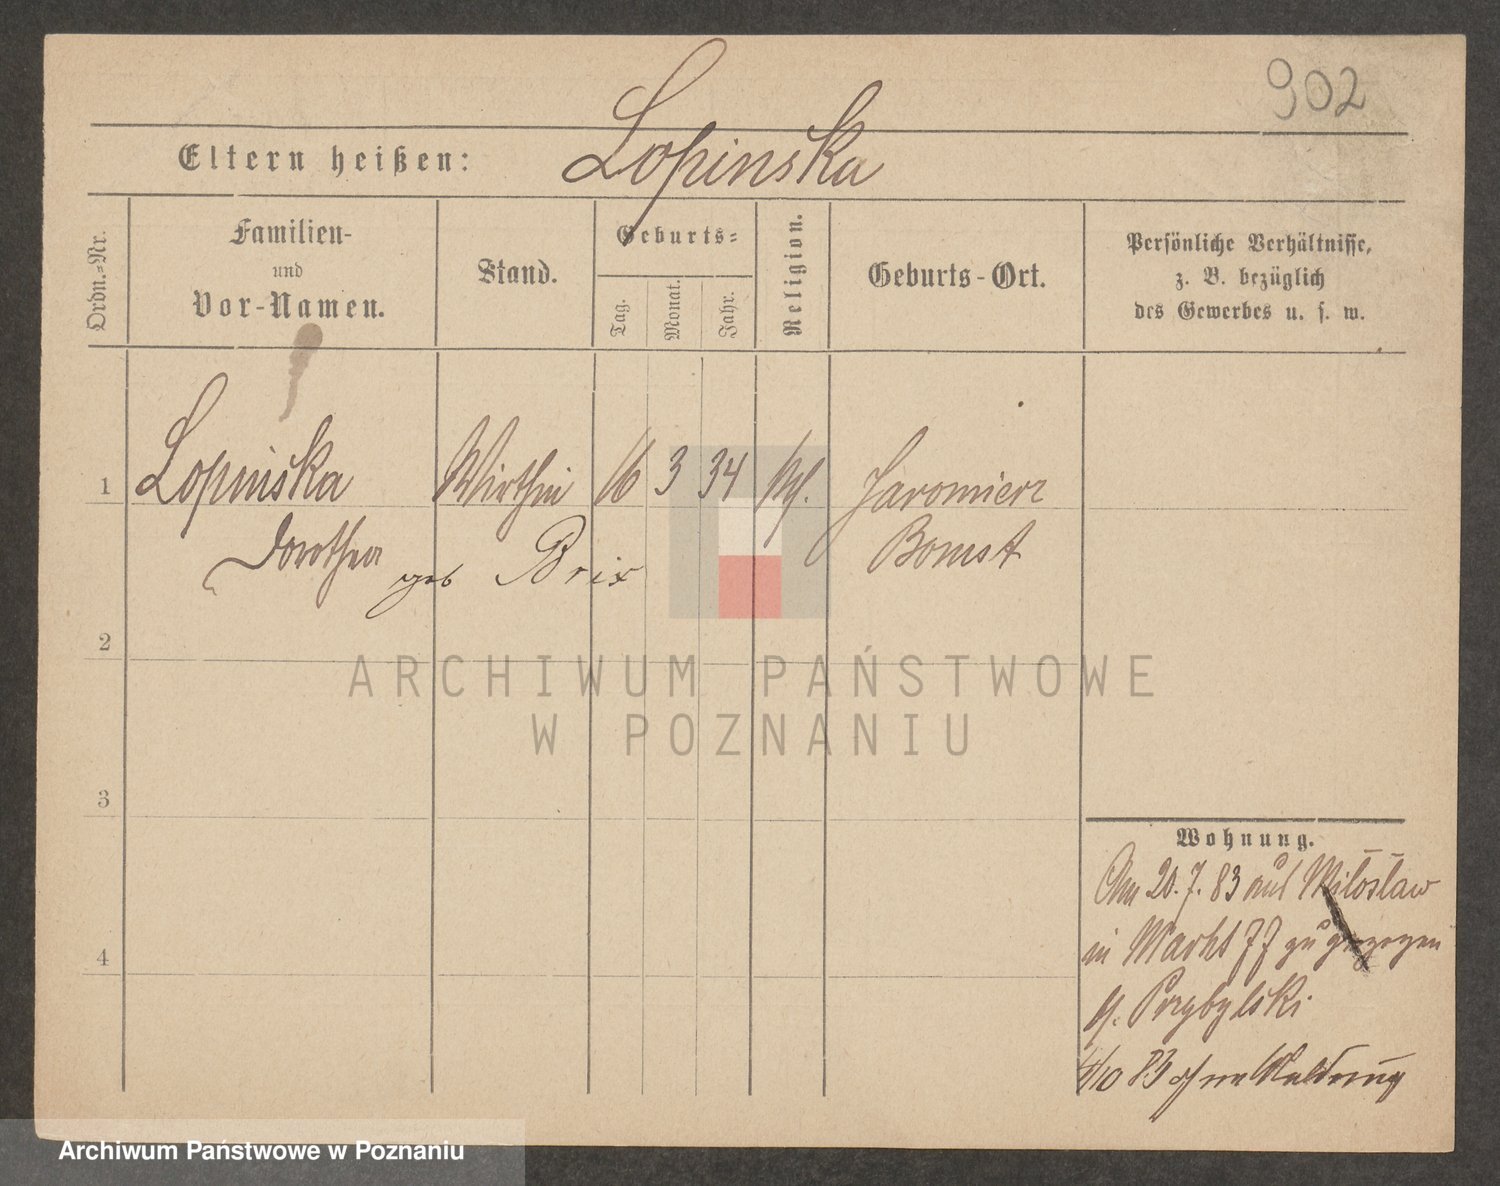 902
Eltern heißen: Lopinska
Ordn.-Nr.
Familien-
und
Vor-Namen.
Stand.
Geburts-
Tag.
Monat.
Jahr.
Religion.
Geburts-Ort.
Persönliche Verhältnisse,
z. B. bezüglich
des Gewerbes u. s. w.
1 Lopinska Wirthin 16 3 34 Jaromierz
Dorothea geb Brix Bomst
2
3
4
Wohnung.
Am 20.7.83 aus Miloslaw
in Markt 77 zugezogen
Przybylski
/10 83 Meldung
ARCHIWUM PAŃSTWOWE
W POZNANIU
Archiwum Państwowe w Poznaniu